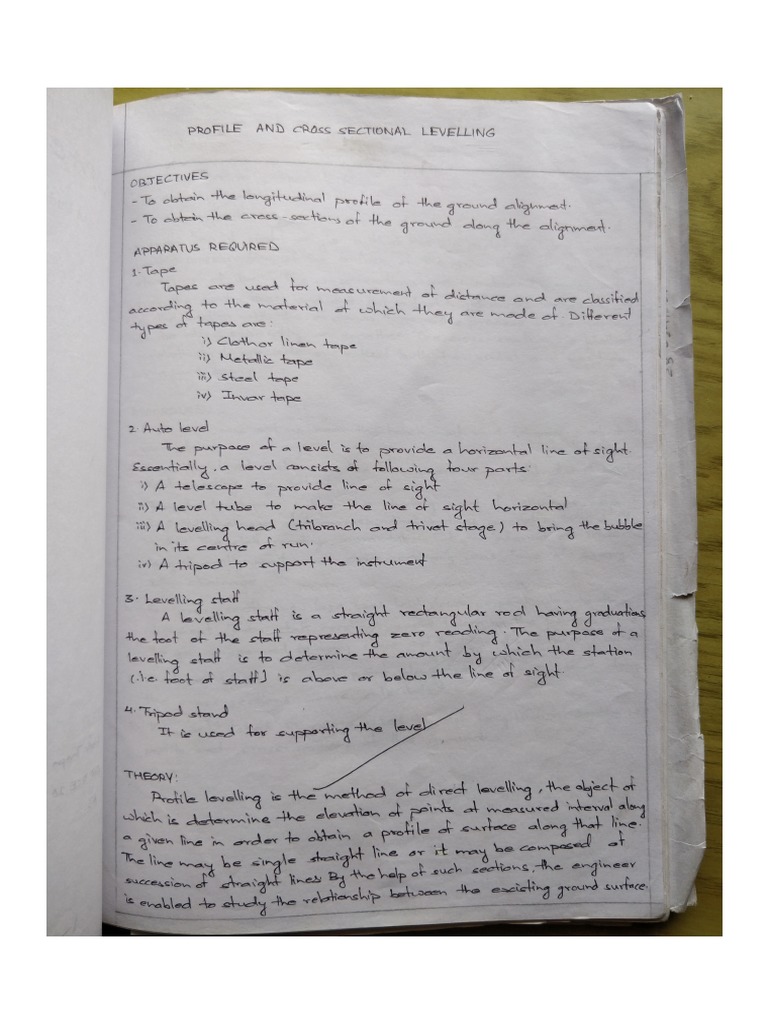 PROFILE AND CROSS SECTIONAL LEVELLING
OBJECTIVES
- To obtain the longitudinal profile of the ground alignment.
- To obtain the cross-sections of the ground along the alignment.
APPARATUS REQUIRED
1. Tape
Tapes are used for measurement of distance and are classified
according to the material of which they are made of. Different
types of tapes are:
i) Cloth or linen tape
ii) Metallic tape
iii) Steel tape
iv) Invar tape
2. Auto level
The purpose of a level is to provide a horizontal line of sight.
Essentially, a level consists of following four parts:
i) A telescope to provide line of sight
ii) A level tube to make the line of sight horizontal
iii) A levelling head (tribranch and trivet stage) to bring the bubble
in its centre of run.
iv) A tripod to support the instrument
3. Levelling staff
A levelling staff is a straight rectangular rod having graduations,
the foot of the staff representing zero reading. The purpose of a
levelling staff is to determine the amount by which the station
(i.e foot of staff) is above or below the line of sight.
4. Tripod stand
It is used for supporting the level
THEORY:
Profile levelling is the method of direct levelling, the object of
which is determine the elevation of points at measured interval along
a given line in order to obtain a profile of surface along that line.
The line may be single straight line or it may be composed of
succession of straight lines By the help of such sections, the engineer
is enabled to study the relationship between the existing ground surface.